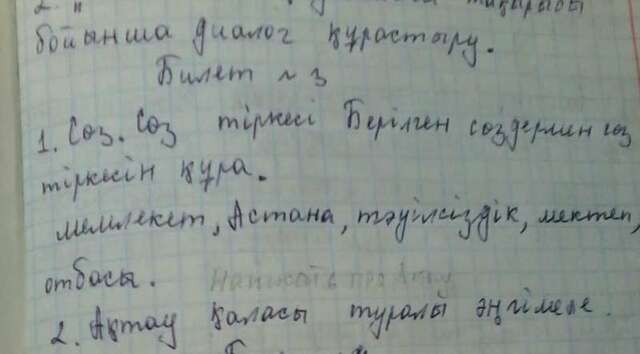 2. тақырыбы
бойынша диалог құрастыру.
Билет ~ 3
1. Сөз. Сөз тіркесі Берілген сөздермен сөз
тіркесін құра.
мемлекет, Астана, тәуілсіздік, мектеп,
отбасы. Написать про Актау
2. Ақтау қаласы туралы әңгімеле.